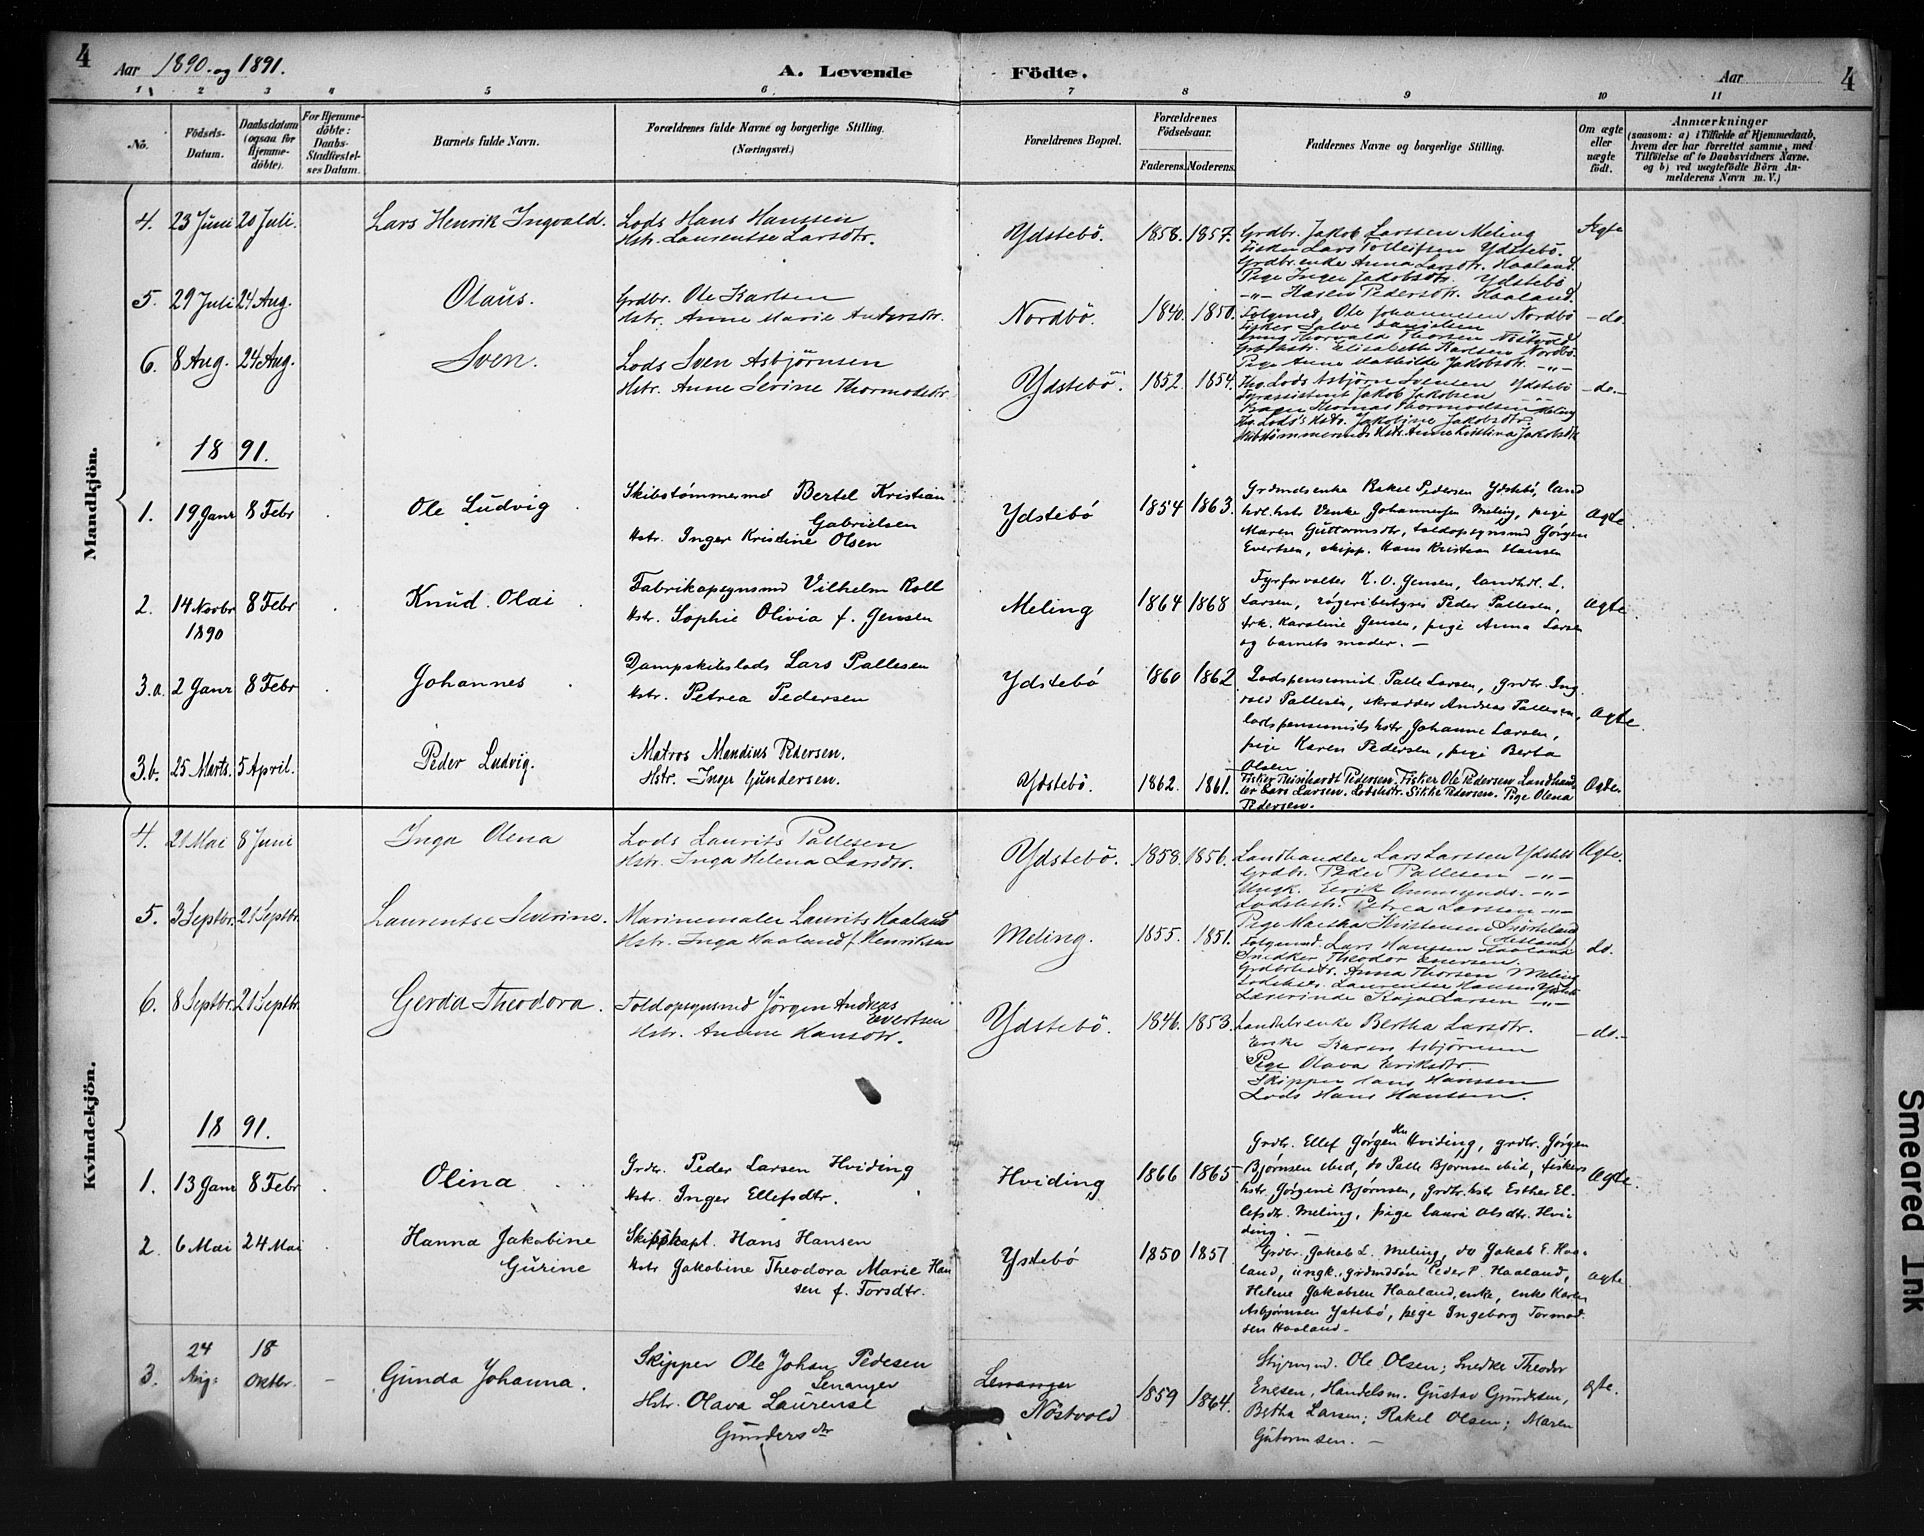 4
Aar 1890. og 1891.
A. Levende Födte.
Aar
4
1 2 3 4 5 6 7 8 9 10 11
No.
Födsels-
Datum.
Daabsdatum
(ogsaa for
Hjemme-
döbte).
For Hjemme-
döbte:
Daabs-
Stadfæstel-
ses Datum.
Barnets fulde Navn.
Forældrenes fulde Navne og borgerlige Stilling.
(Næringsvei.)
Forældrenes Bopæl.
Forældrenes
Födselsaar.
Faderens. Moderens.
Faddernes Navne og borgerlige Stilling.
Om ægte
eller
uægte
födt.
Anmærkninger
(saasom: a) i Tilfælde af Hjemmedaab,
hvem der har forrettet samme, med
Tilföielse af to Daabsvidners Navne.
og b) ved uægtefödte Börn An-
melderens Navn m. V.)
Mandkjön.
4. 23 Juni 20 Juli. Lars Henrik Ingvald. Lods Hans Hanssen
Hstr. Laurentse Larsdtr.
Ydstebö. 1858. 1857. Grdbr. Jakob Larssen Meling
Fisker Lars Tolleifsen Ydstebö.
Grdbr.enke Anna Larsdtr. Haaland.
Pige Inger Jakobsdtr. Ydstebö
-"- Karen Pedersdtr. Haaland.
Ægte
5. 29 Juli 24 Aug. Olaus. Grdbr. Ole Karlsen
Hstr. Anne Marie Andersdtr.
Nordbö. 1840. 1850. Folgemd. Ole Johannesen Nordbö
Fisker Salve Danielsen
Ung. Thorvald Thorsen Nöstvold
Grbr.hstr. Elisabeth Karlsen Nordbö.
Pige Anne Mathilde Jakobsdtr. -"-
-do.
6. 8 Aug. 24 Aug. Sven. Lods Sven Asbjörnsen
Hstr. Anne Serine Thormodsdtr.
Ydstebö. 1852. 1854. Lods Asbjörn Svensen Ydstebö
Fyrassistent Jakob Jakobsen
Thomas Thormodsen Meling
Hstr. Jakobine Jakobsdtr.
Skibstömmermds Hstr. Anne Kristina Jakobsdtr.
-do.-
1891.
1. 19 Janr 8 Febr Ole Ludvig Skibstømmermd Bertel Kristian
Gabrielsen
Hstr. Inger Kristine Olsen
Ydstebö 1854 1863. Grdmdsenke Rakel Pedersen Ydstebö, land
hdl. hstr Venke Johannesen Meling, pige
Maren Guttormsdtr, toldopsynsmd Jørgen
Evertsen, skipp. Hans Kristian Hansen
Ægte
2. 14 Novbr 8 Febr Knud Olai
1890
Fabrikopsynsmd Vilhelm Roll
Hstr. Sophie Olivia f. Jensen
Meling 1864 1868 Fyrforvalter K. O. Jensen, landhdl. L.
Larsen, røgeribestyrer Peder Pallesen,
frk. Karoline Jensen, pige Anna Larsen
og barnets moder. -
Ægte
3.a. 2 Janr 8 Febr Johannes Dampskibslods Lars Pallesen
Hstr. Petrea Pedersen
Ydstebö 1860 1862 Lodspensionist Palle Larsen, grdbr. Ing
vald Pallesen, skrædder Andreas Pallesen,
lodspensionists hstr. Johanne Larsen,
pige Karen Pedersen, pige Berta
Olsen
Ægte
3.b. 25 Marts. 5 April. Peder Ludvig. Matros Mandius Pedersen.
Hstr. Inger Gundersen.
Ydstebö. 1862. 1861. Fisker Reinhardt Pedersen. Fisker Ole Pedersen. Landhand
ler Lars Larsen. Lodshstr. Sikke Pedersen. Pige Olena
Pedersen.
Ægte.
Kvindekjön.
4. 21 Mai 8 Juni Inga Olena Lods Laurits Pallesen
Hstr. Inga Helena Larsdtr.
Ydstebö. 1858. 1856. Landhandler Lars Larssen Ydstebö
Grdbr. Peder Pallesen -"-
Ungk. Eerik Ommunds. -"-
Lodshstr. Petrea Larssen -"-
Ægte.
5. 3 Septbr. 21 Septbr. Laurentse Severine. Marinemaler Laurits Haaland
Hstr. Inga Haaland f. Henriksen
Meling. 1855. 1851. Pige Martha Kristensen
Folgemd. Lars Hanssen Haaland
Snedker Theodor Enersen.
Grdbrhstr. Anna Thorsen Meling
Laurentse Hansen Ydsteb
Lærerinde Kaja Larsen -"-
do.
6. 8 Septbr. 21 Septbr. Gerda Theodora. Toldopsynsmd Jörgen Andreas
Evertsen
Hstr. Anne Hansdtr.
Ydstebö. 1846. 1853. Landhdlr.enke Bertha Larsdtr.
Enke Karen Asbjörnsen
Pige Olava Eriksdtr.
Skipper Hans Hanssen
Lods Hans Hanssen.
-do.-
1891.
1. 13 Janr 8 Febr Olina Grdbr. Peder Larsen Hviding
Hstr. Inger Ellefsdtr.
Hviding 1866 1865 Grdbr. Ellef Jørgensen Hviding, grdbr. Jørgen
Bjørnsen ibid, do Palle Bjørnsen ibid, fisker
hstr. Jørgine Bjørnsen, grdbr.hstr Esther El-
lefsdtr. Meling, pige Laura Olsdtr. Hvi
ding. -
Ægte.
2. 6 Mai 24 Mai Hanna Jakobine
Gurine
Skibskapt. Hans Hansen
Hstr Jakobine Theodora Marie Han
sen f. Torsdtr.
Ystebö 1850 1851 Grdbr. Jakob L. Meling, do Jakob E. Haa-
land, ungk. grdmdsøn Peder P. Haaland,
Helene Jakobsen Haaland, enke, enke Karen
Asbjørnsen Ystebö, pige Ingeborg Tormod
sen Haaland.-
ægte
3. 24 Aug: 18 Oktbr. - Gunda Johanna. Skipper Ole Johan Pedesen
Lenanger
Hstr. Olava Laurense
Gundersdtr
Lenanger
Nöstvold 1859 1864. Styrmnd. Ole Olsen; Snedke Theodor
Enesen, Handelsm. Gustav Gundesen,
Betha Larsen; Rakel Olsen; Maren
Gutormsen. -
ægte.
Smeared Ink